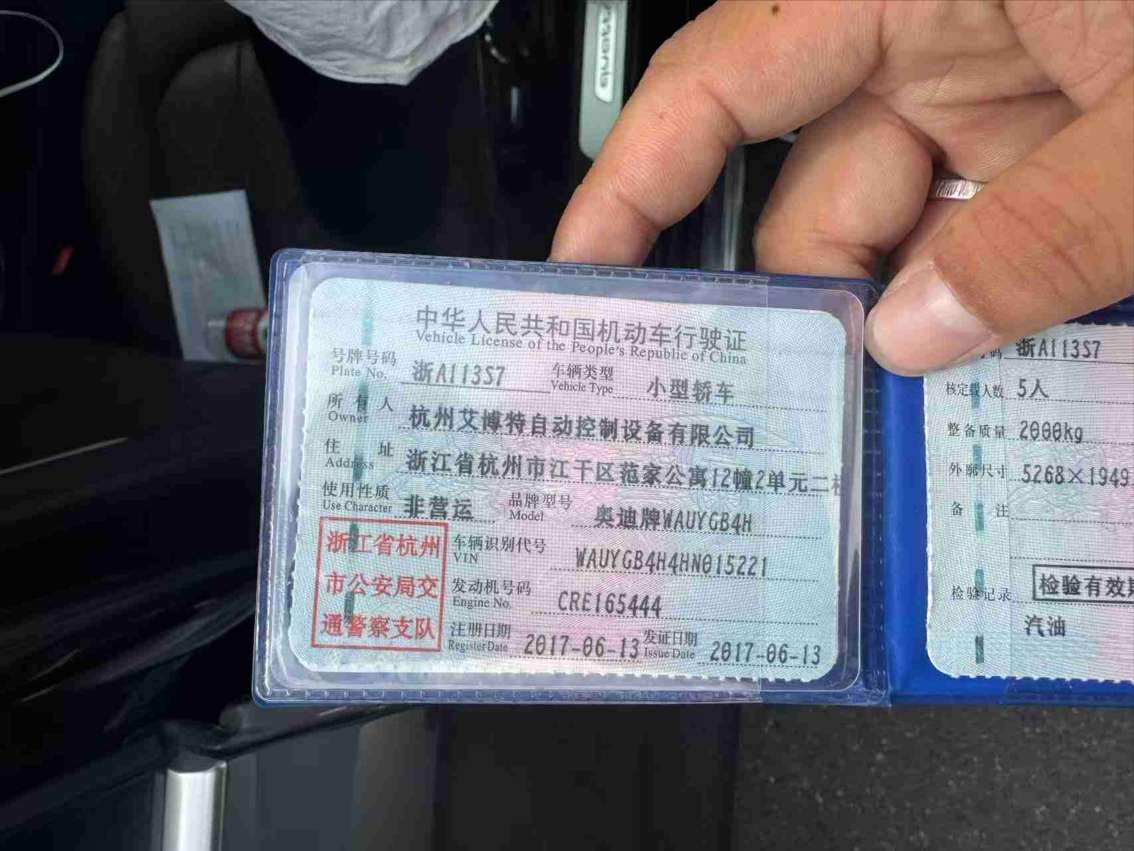 中华人民共和国机动车行驶证
Vehicle License of the People's Republic of China
号牌号码 浙A113S7 车辆类型 小型轿车
Plate No. Vehicle Type
所有人 杭州艾博特自动控制设备有限公司
Owner
住址 浙江省杭州市江干区范家公寓12幢2单元二
Address
使用性质 非营运 品牌型号 奥迪牌WAUYGB4H
Use Character Model
浙江省杭州
市公安局交
通警察支队
车辆识别代号 WAUYGB4H4HN015221
VIN
发动机号码 CRE165444
Engine No.
注册日期 2017-06-13 发证日期 2017-06-13
Register Date Issue Date
码 浙A113S7
核定载人数 5人
整备质量 2000kg
外廓尺寸 5268×1949
备注
检验记录 检验有效期
汽油